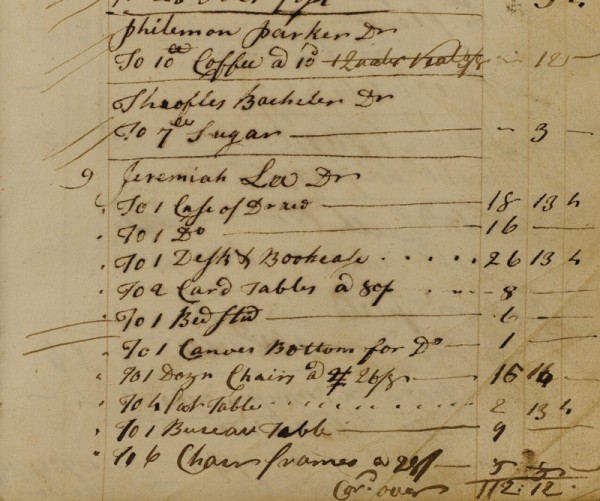 Philemon Parker Dr
To 10 lb Coffee a 1/3 12 —
Theofles Bacheler Dr
To 7 lb Sugar — " 3 —
9 Jeremiah Lee Dr
To 1 Case of Draws — 18 13 4
To 1 Do — 16 —
To 1 Desk & Bookcase . . . . . 26 13 4
To 2 Card Tables a 80/ . . — 8 —
To 1 Bedsted — 6 —
To 1 Canves Bottom for Do — 1 —
To 1 Dozn Chairs a 26/8 — 16 16 —
To 4 Table . . . . . . . . 2 13 4
To 1 Bureau Table — 9 —
To 6 Chair frames a — 5
Card. over 112: 12